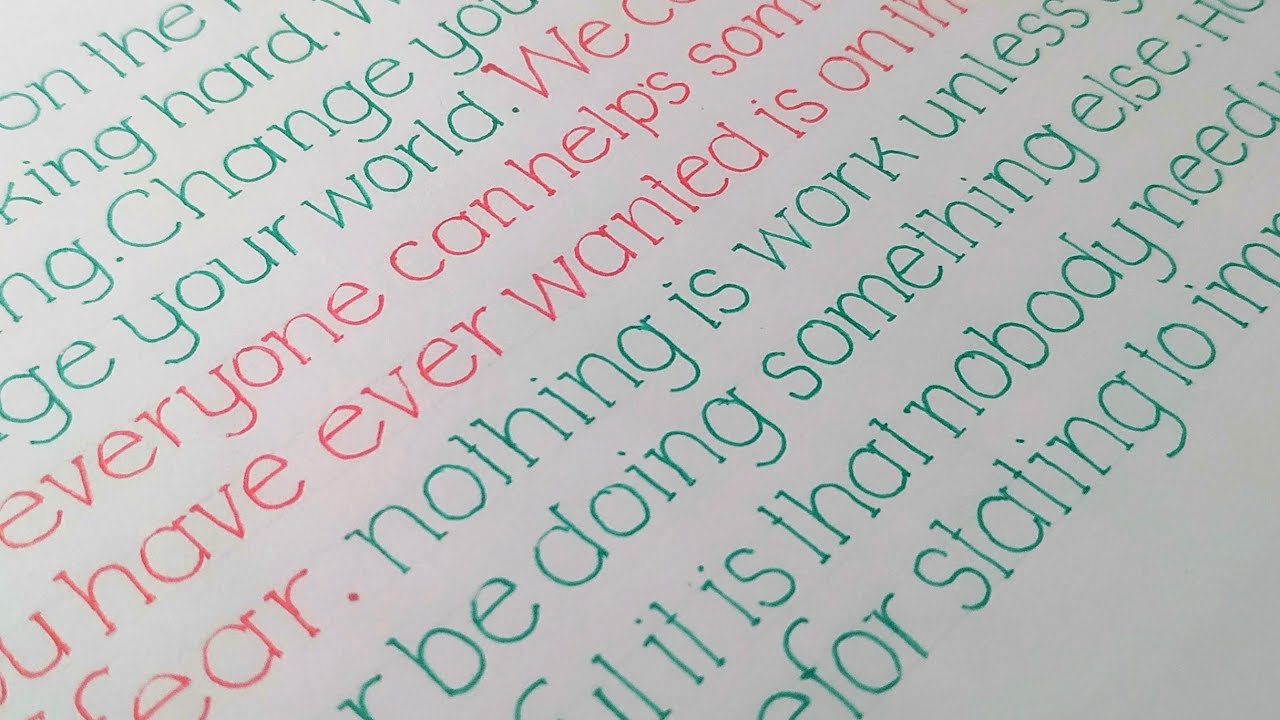 on the
king hard.
ng. Change you
ge your world. We
everyone can helps som
u have ever wanted is on
fear. nothing is work unless
r be doing something else.
it is that nobody need
for stating to im